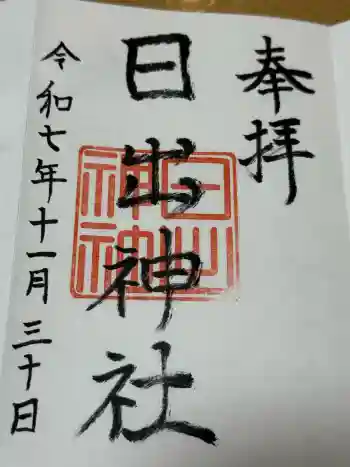 奉拝
日出神社
令和七年十一月三十日